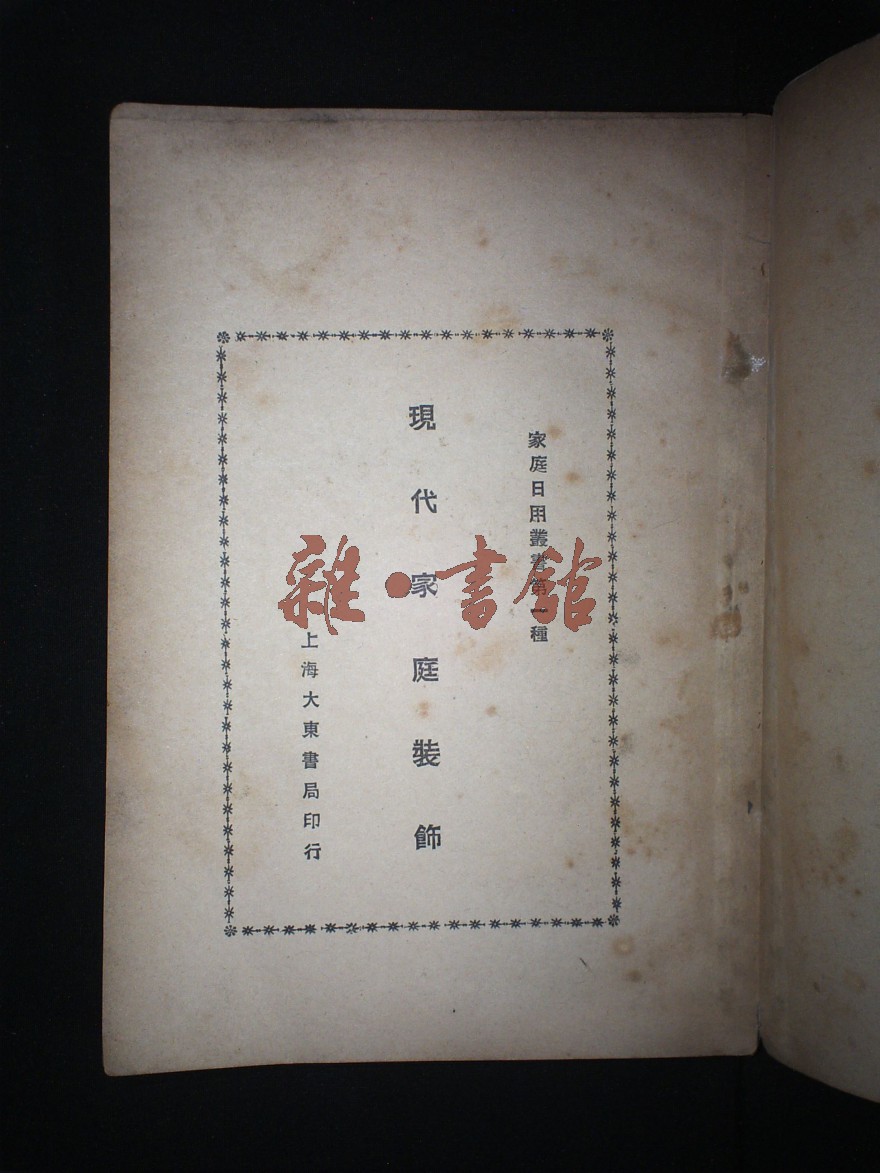 家庭日用叢書第一種
現代家庭裝飾
上海大東書局印行
雜·書館